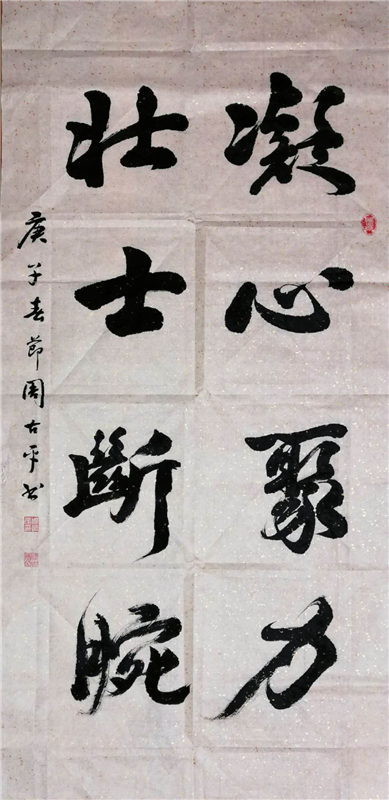 凝心聚力
壯士斷腕
庚子春節周古平书